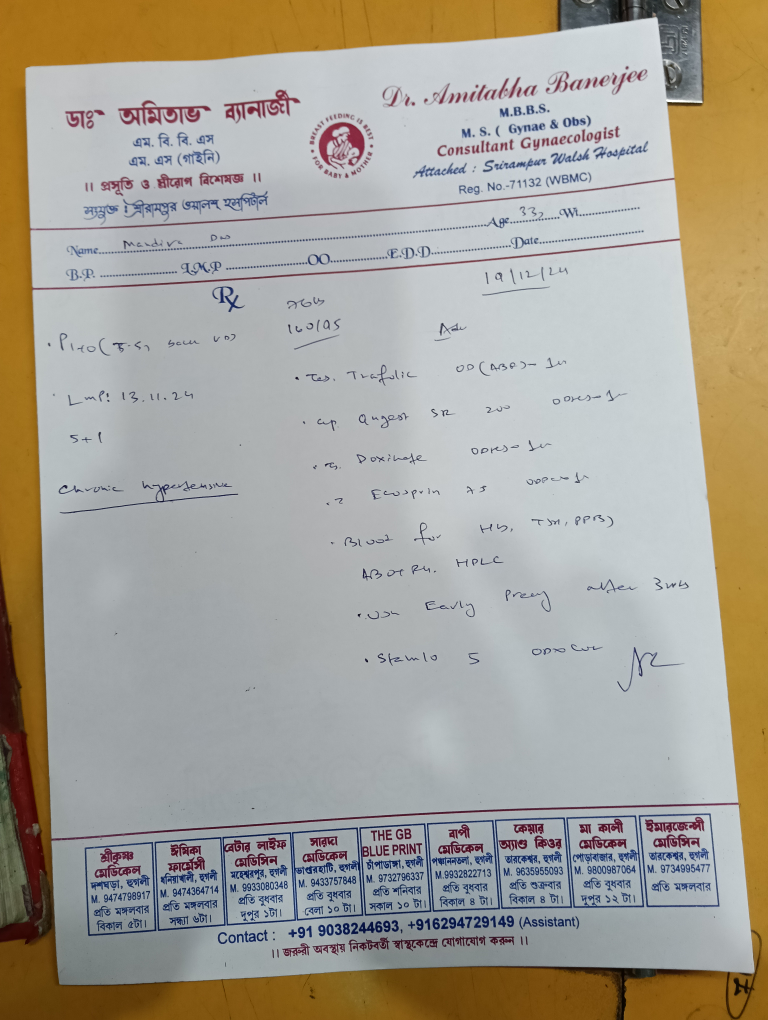 ডাঃ অমিতাভ ব্যানার্জী
এম. বি. বি. এস
এম. এস (গাইনি)
।। প্রসূতি ও স্ত্রীরোগ বিশেষজ্ঞ ।।
সংযুক্ত : শ্রীরামপুর ওয়ালস্ হসপিটাল
BREAST FEEDING IS BEST FOR BABY & MOTHER
Dr. Amitabha Banerjee
M.B.B.S.
M. S. ( Gynae & Obs)
Consultant Gynaecologist
Attached : Srirampur Walsh Hospital
Reg. No.-71132 (WBMC)
Name Mandira Das Age 33 Wt.
B.P. L.M.P OO E.D.D. Date
Rx 19/12/24
160/95
Adv
LMP: 13.11.24
5+1
Chronic hypertensive
Trafolic OD (ABF) - 1m
Cap Qugest SR 200
Doxinate
Ecosprin 75
Blood for Hb, TSH, PPBS
ABO+Rh. HPLC
USG Early Preg after 3wks
Stamlo 5
শ্রীকৃষ্ণ মেডিকেল
দশঘড়া, হুগলী
M. 9474798917
প্রতি মঙ্গলবার
বিকাল ৫টা।
ঈশিকা ফার্মেসী
ধনিয়াখালী, হুগলী
M. 9474364714
প্রতি মঙ্গলবার
সন্ধ্যা ৬টা।
বেটার লাইফ মেডিসিন
মহেশ্বরপুর, হুগলী
M. 9933080348
প্রতি বুধবার
দুপুর ১টা।
সারদা মেডিকেল
ভাণ্ডারহাটি, হুগলী
M. 9433757848
প্রতি বুধবার
বেলা ১০ টা।
THE GB
BLUE PRINT
চাঁপাডাঙ্গা, হুগলী
M. 9732796337
প্রতি শনিবার
সকাল ১০ টা।
বাপী মেডিকেল
পঞ্চাননতলা, হুগলী
M.9932822713
প্রতি বুধবার
বিকাল ৪ টা।
কেয়ার অ্যাণ্ড কিওর
তারকেশ্বর, হুগলী
M. 9635955093
প্রতি শুক্রবার
বিকাল ৪ টা।
মা কালী মেডিকেল
পোড়াবাজার, হুগলী
M. 9800987064
প্রতি বুধবার
দুপুর ১২ টা।
ইমারজেন্সী মেডিসিন
তারকেশ্বর, হুগলী
M. 9734995477
প্রতি মঙ্গলবার
Contact : +91 9038244693, +916294729149 (Assistant)
।। জরুরী অবস্থায় নিকটবর্তী স্বাস্থকেন্দ্রে যোগাযোগ করুন ।।